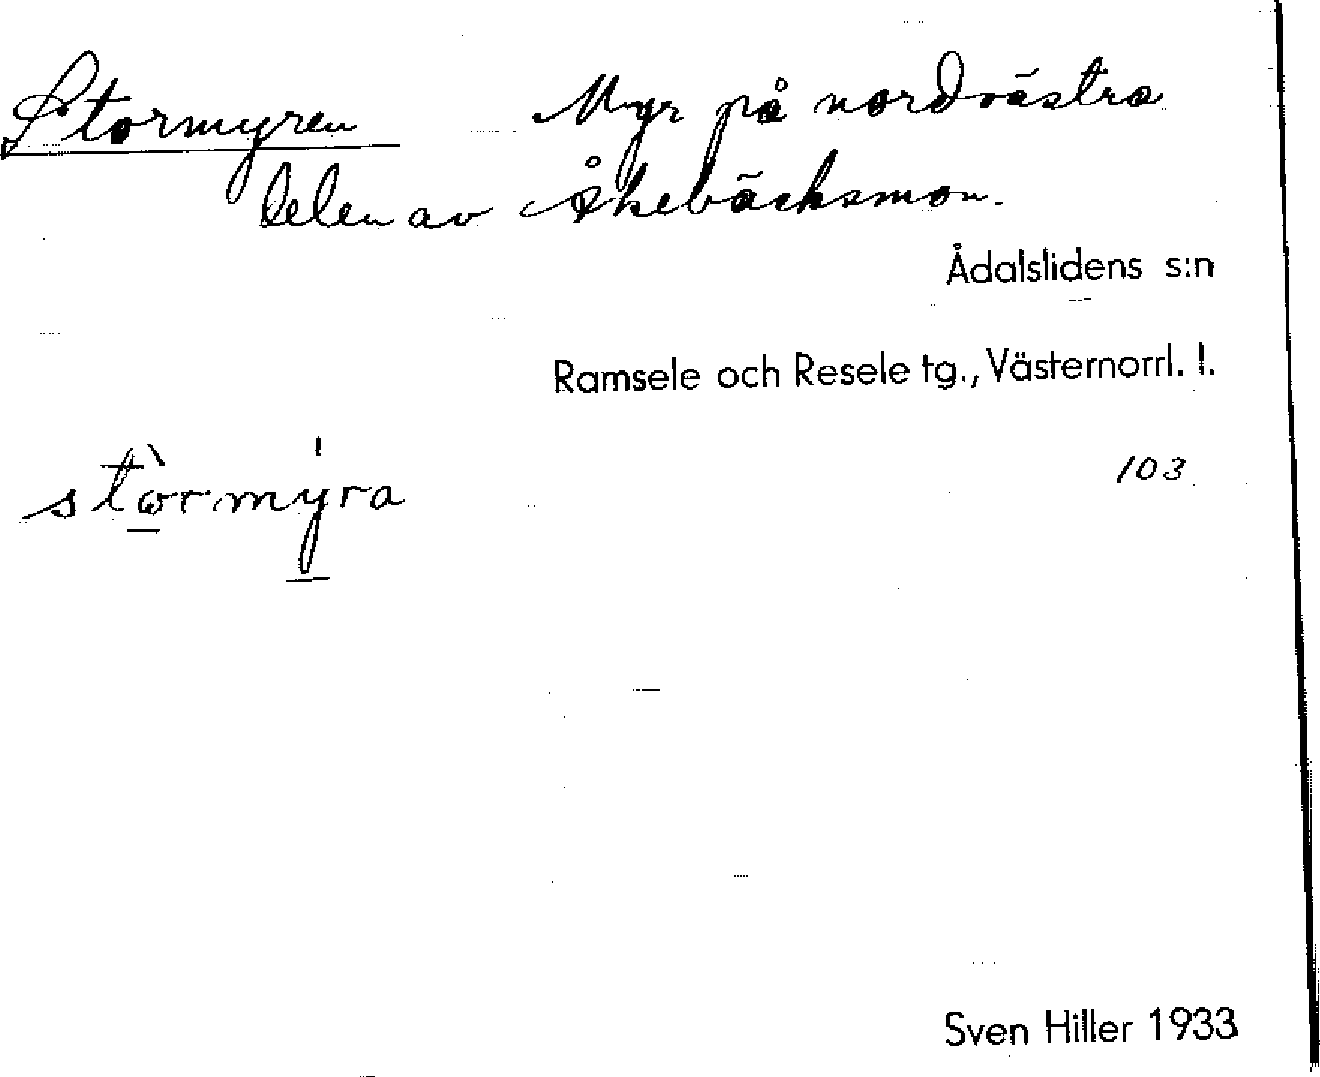 Stormyren Myr på nordvästra
delen av Åkebäcksmon.
Ådalslidens s:n
Ramsele och Resele tg., Västernorrl. l.
stòrmýra
103
Sven Hiller 1933